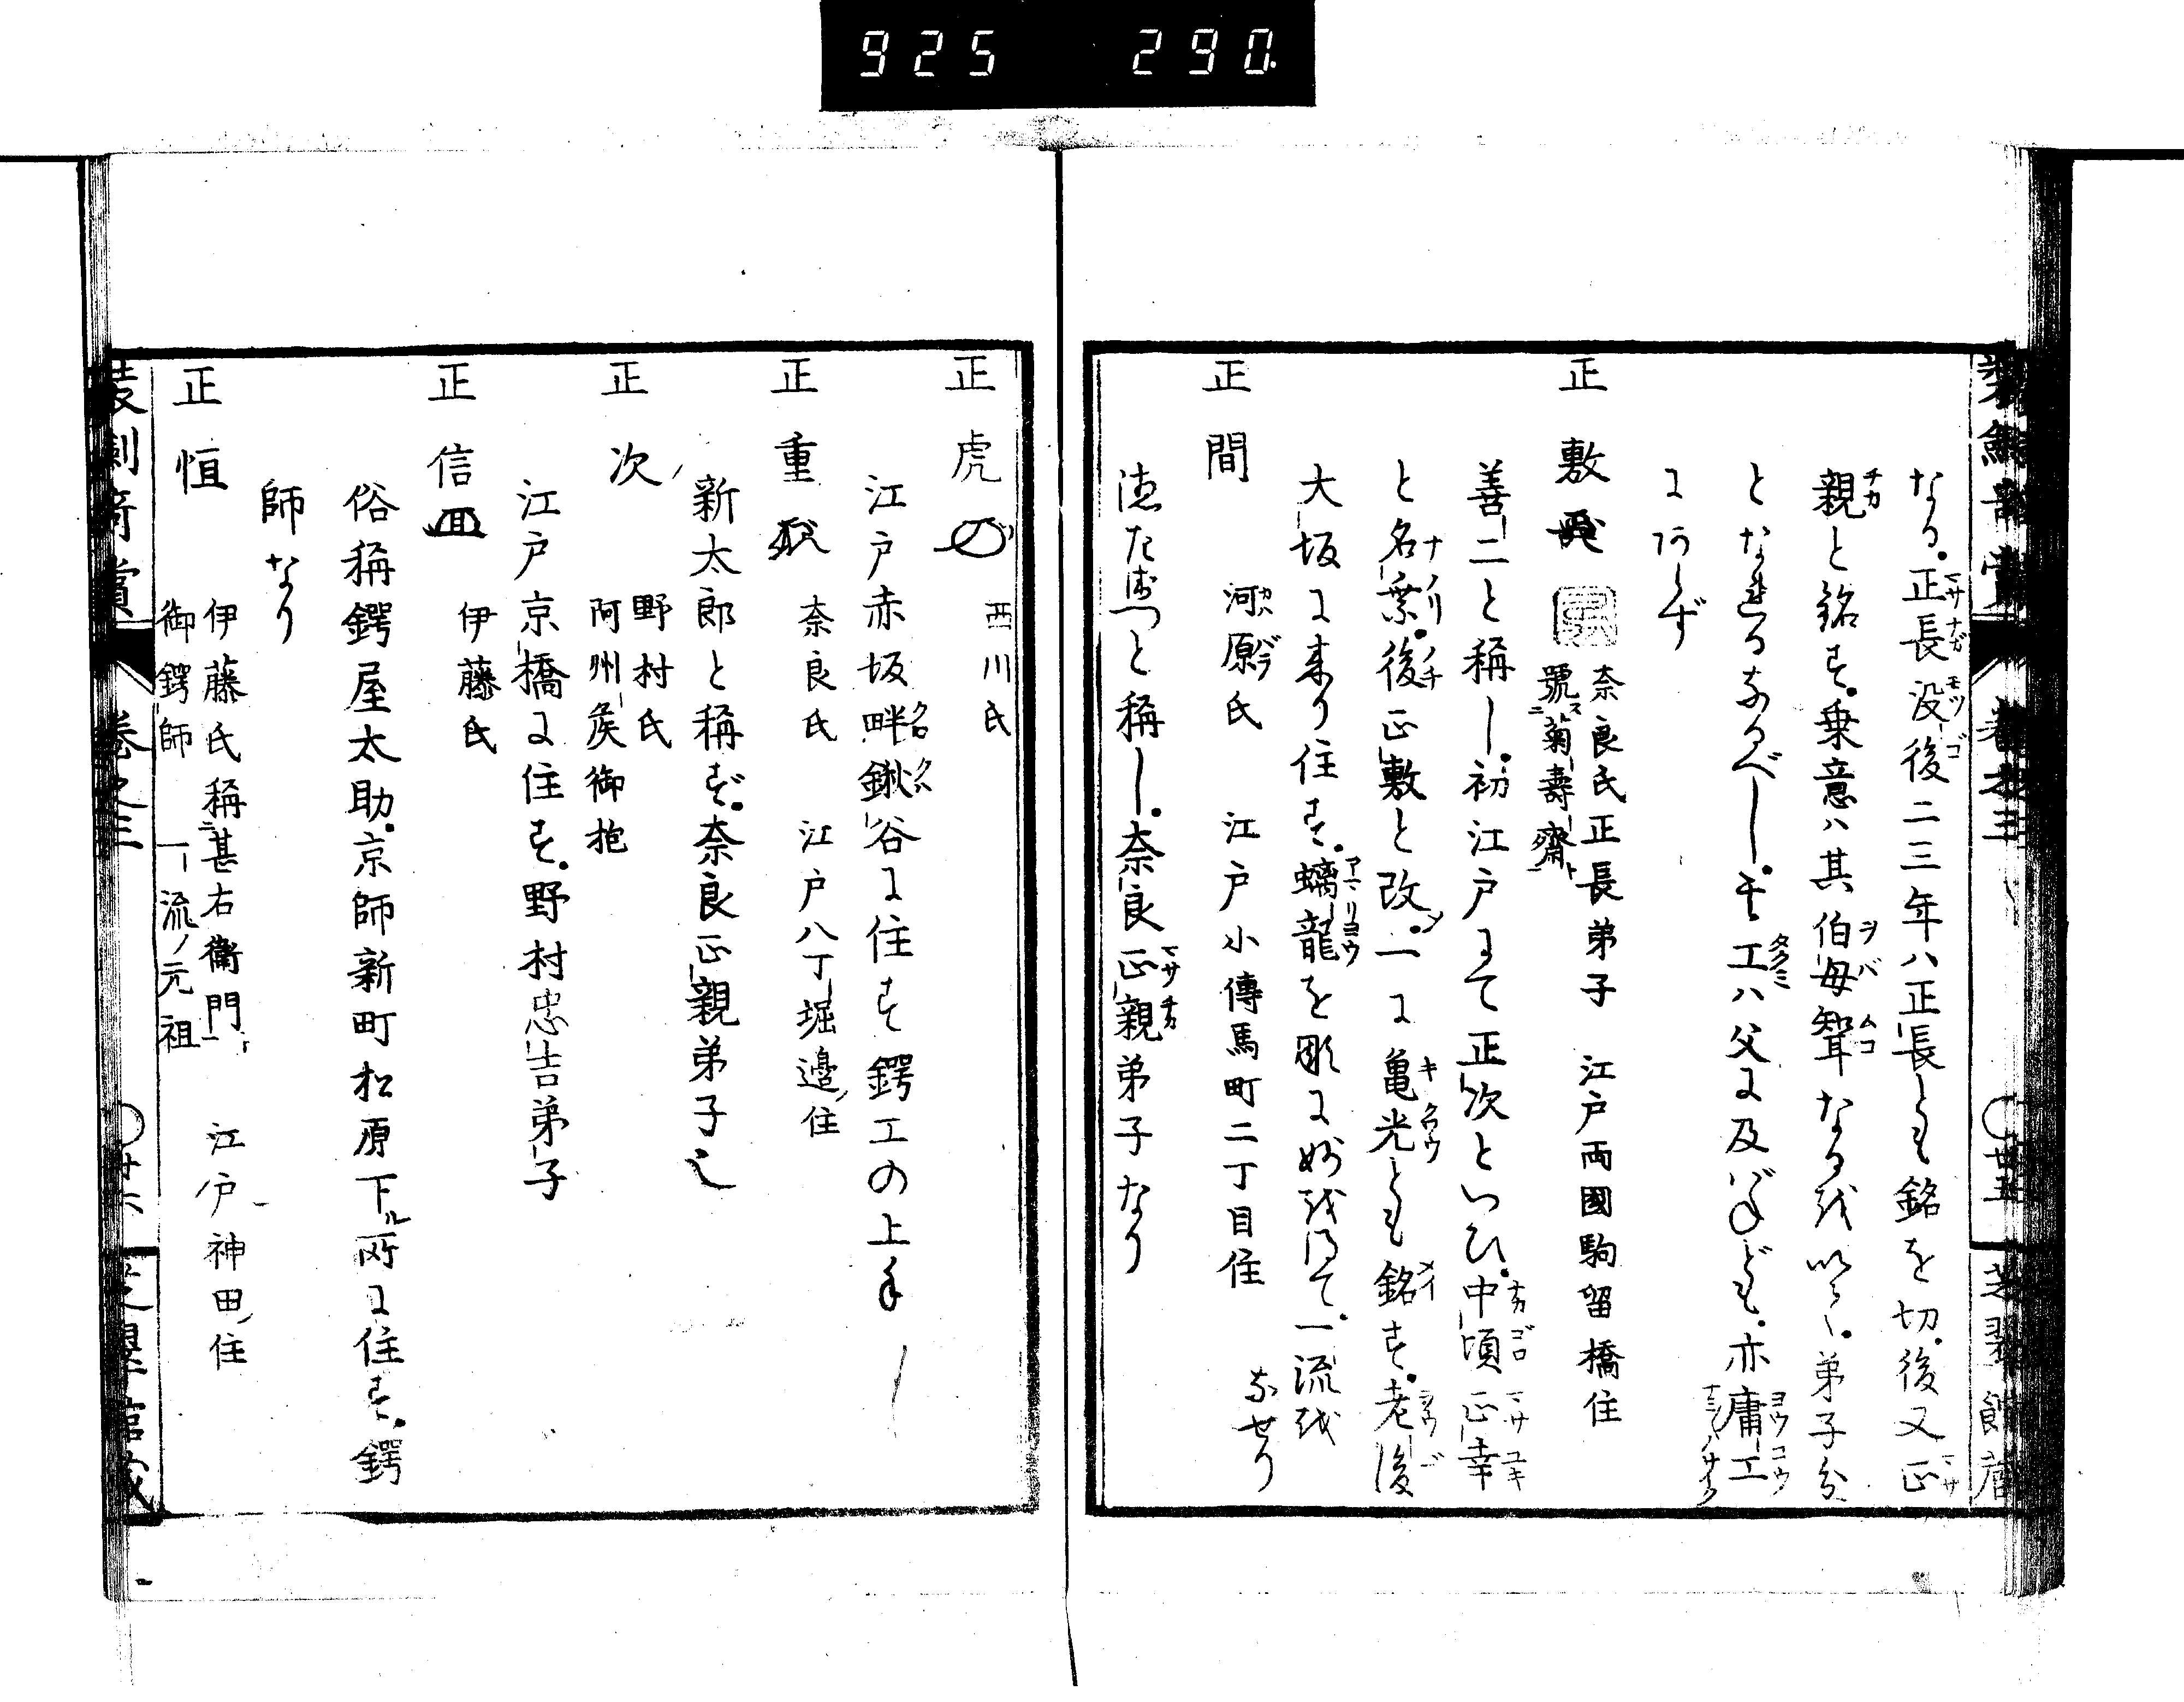 925 290
なり。正長没後二三年ハ正長とも銘を切。後又正
親と銘す。乗意ハ其伯母聟なるを以て。弟子分
となせるなるべし。其工ハ父に及バねども。亦庸工
にあらず
正敷
奈良氏正長弟子 江戸両國駒留橋住
號菊壽齋
善二と稱し。初江戸にて正次といひ。中頃正幸
と名乗。後正敷と改。一に亀光とも銘す。老後
大坂に来り住す。螭龍を彫に妙を得て。一流を
なせり
正間
河原氏 江戸小傳馬町二丁目住
と稱し。奈良正親弟子なり
正虎
西川氏
江戸赤坂畔鍬谷に住す鍔工の上手
正重
奈良氏 江戸八丁堀邉ノ住
新太郎と稱す。奈良正親弟子也
正次
野村氏
阿州侯御抱
江戸京橋に住す。野村忠吉弟子
正信
伊藤氏
俗稱鍔屋太助。京師新町松原下ル所に住す。鍔
師なり
正恒
伊藤氏稱甚右衛門 江戸神田ノ住
御鍔師 一流ノ元祖
装劍奇賞 巻之三 廿六